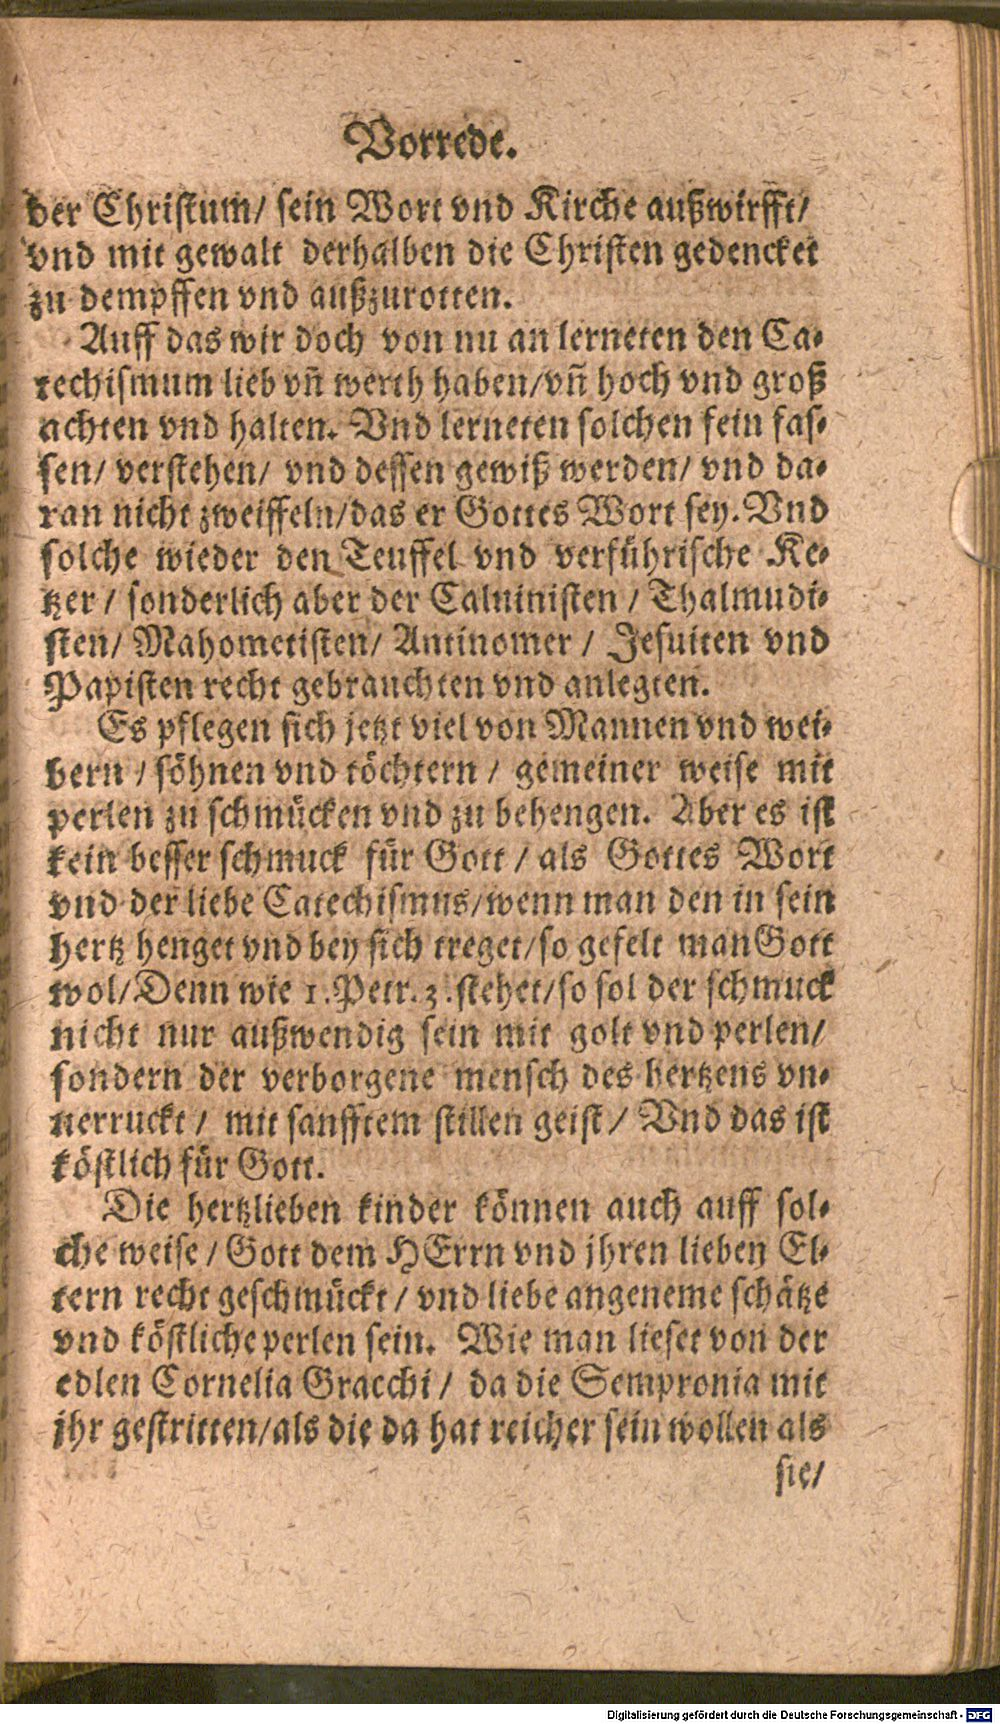 Vorrede.
der Christum/ sein Wort vnd Kirche außwirfft/
vnd mit gewalt derhalben die Christen gedencket
zu dempffen vnd außzurotten.
Auff das wir doch von nu an lerneten den Ca-
techismum lieb vn̄ werth haben/vn̄ hoch vnd groß
achten vnd halten. Vnd lerneten solchen fein fas-
sen/ verstehen/ vnd dessen gewiß werden/ vnd da-
ran nicht zweiffeln/das er Gottes Wort sey. Vnd
solche wieder den Teuffel vnd verführische Ke-
tzer / sonderlich aber der Caluinisten / Thalmudi-
sten/ Mahometisten/ Antinomer / Jesuiten vnd
Papisten recht gebrauchten vnd anlegten.
Es pflegen sich jetzt viel von Mannen vnd wei-
bern / söhnen vnd töchtern / gemeiner weise mit
perlen zu schmücken vnd zu behengen. Aber es ist
kein besser schmuck für Gott / als Gottes Wort
vnd der liebe Catechismus/wenn man den in sein
hertz henget vnd bey sich treget/so gefelt man Gott
wol/Denn wie 1.Petr. 3 .stehet/so sol der schmuck
nicht nur außwendig sein mit golt vnd perlen/
sondern der verborgene mensch des hertzens vn-
uerruckt / mit sanfftem stillen geist / Vnd das ist
köstlich für Gott.
Die hertzlieben kinder können auch auff sol-
che weise / Gott dem HErrn vnd jhren lieben El-
tern recht geschmückt / vnd liebe angeneme schätze
vnd köstliche perlen sein. Wie man lieset von der
edlen Cornelia Gracchi / da die Sempronia mit
jhr gestritten/als die da hat reicher sein wollen als
sie/
Digitalisierung gefördert durch die Deutsche Forschungsgemeinschaft - DFG